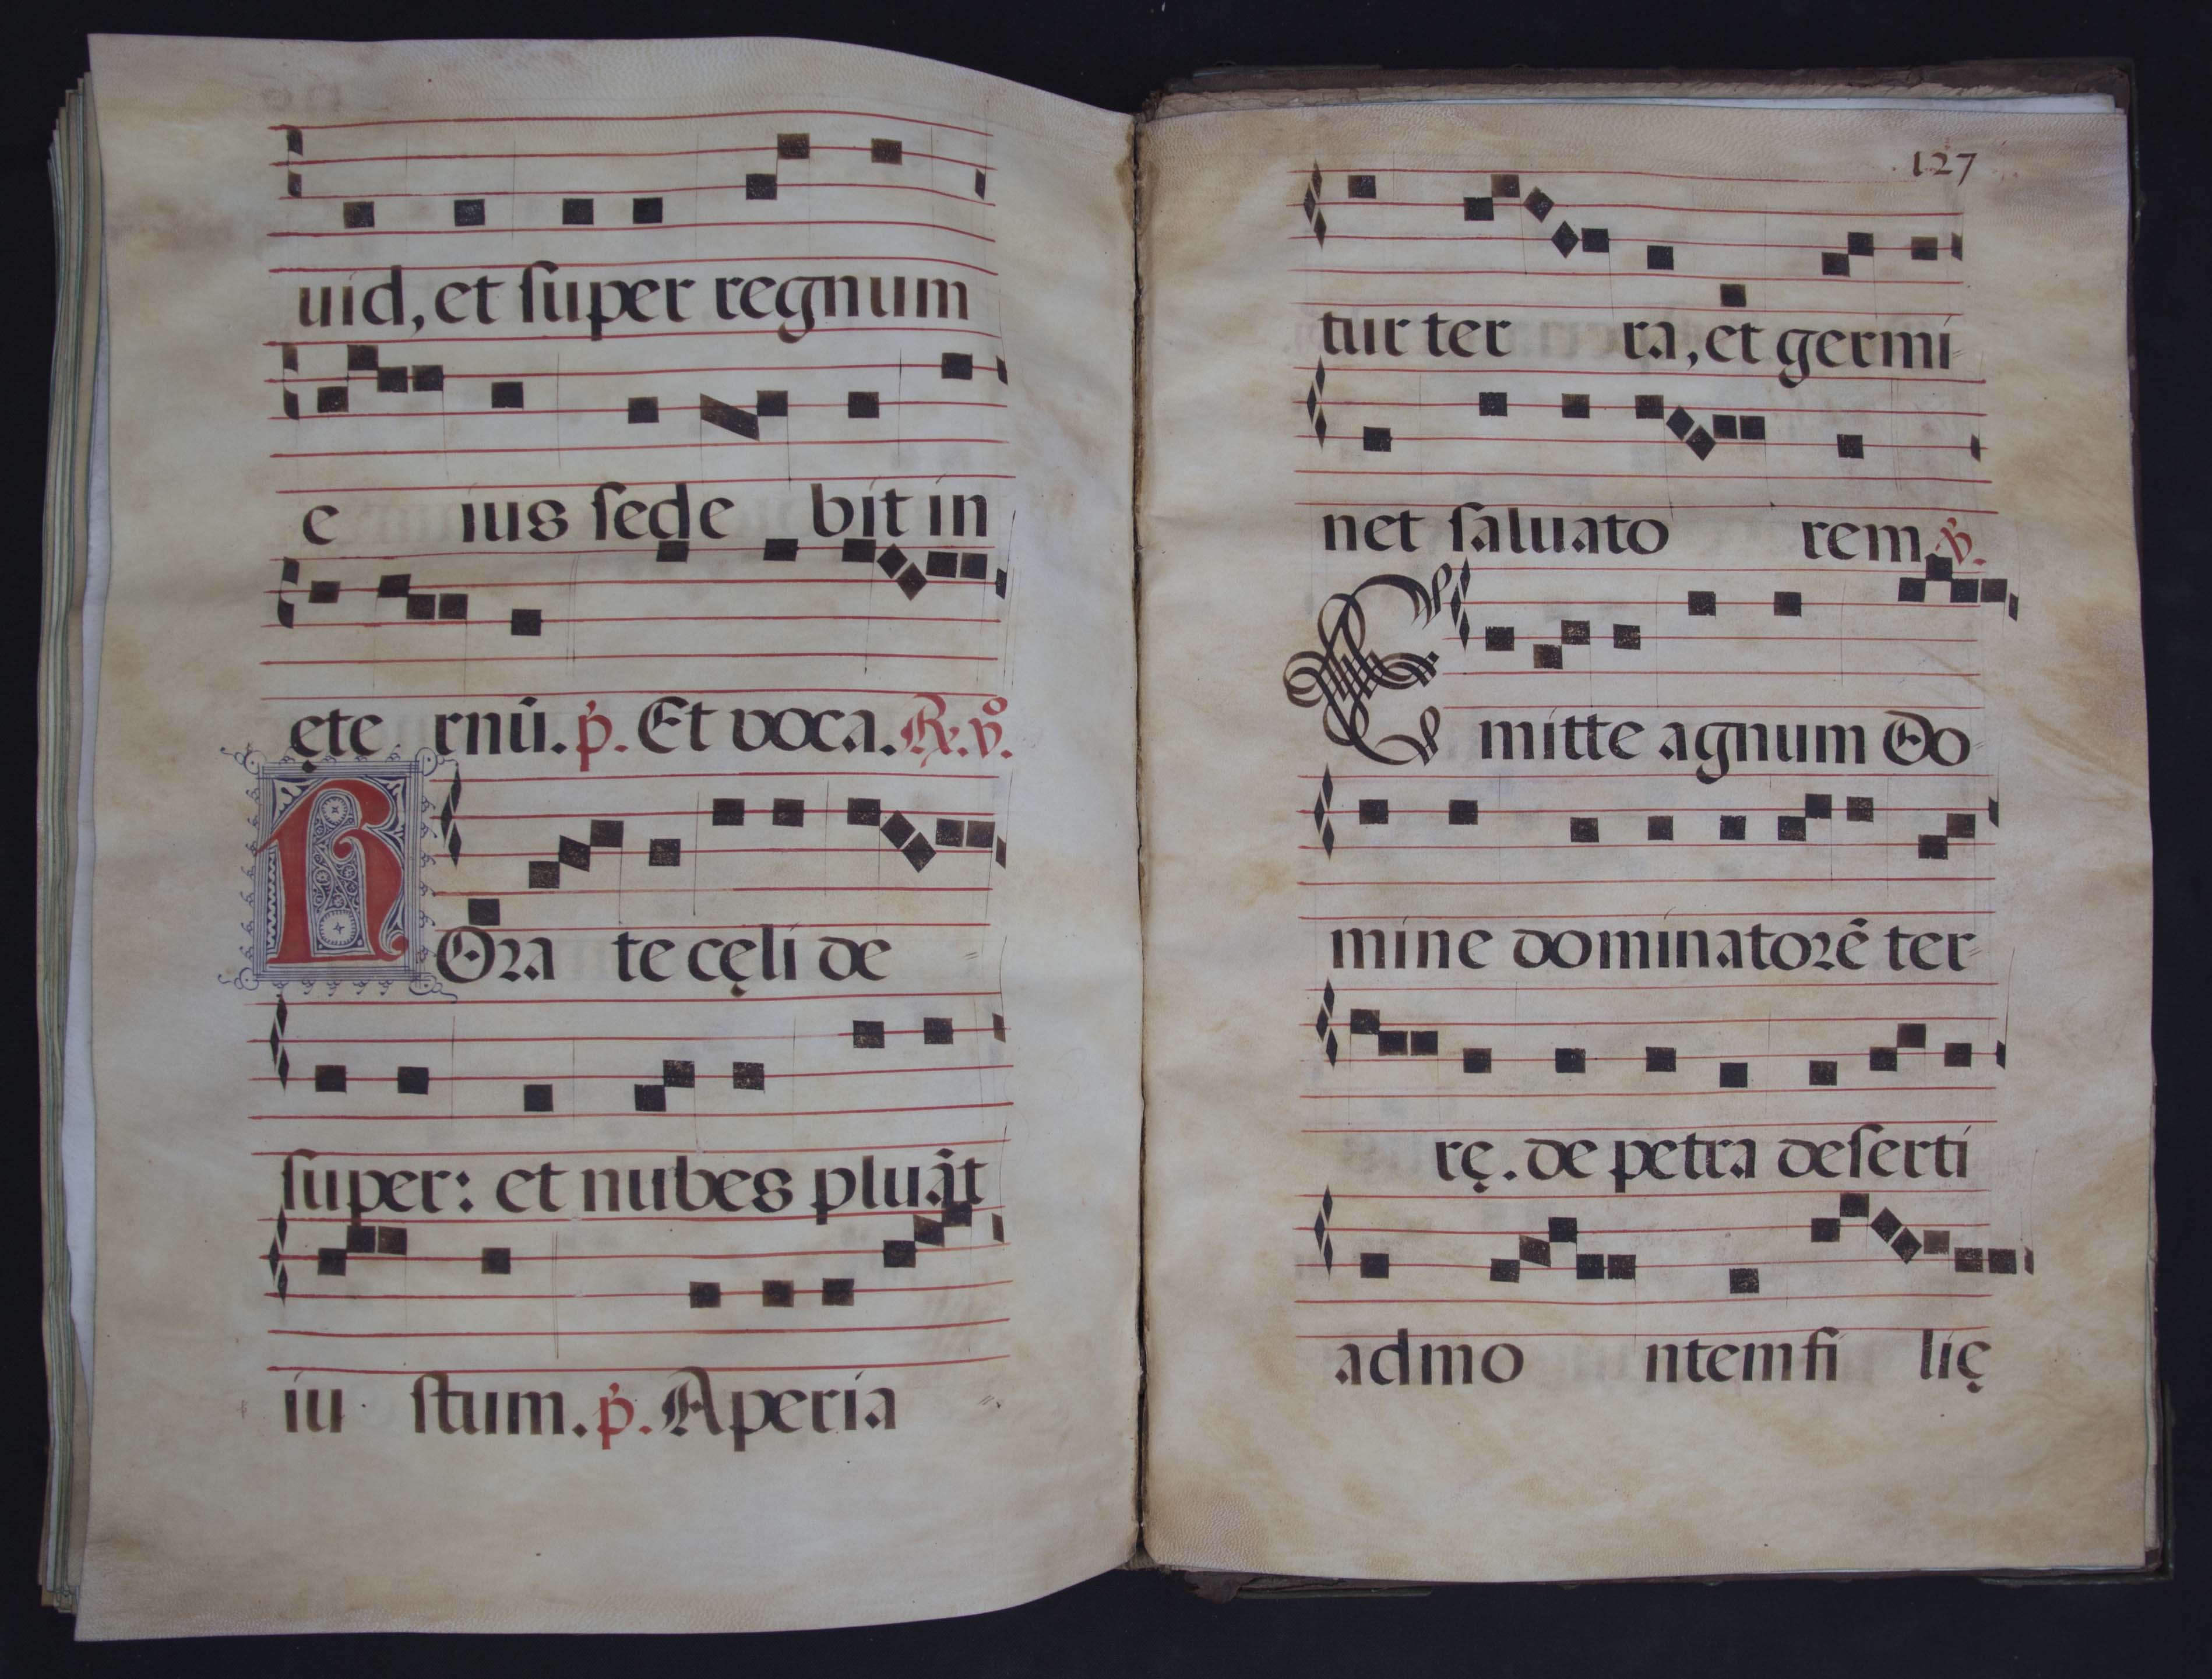 uid, et ſuper regnum
e ius ſede bit in
ęte rnū. p̄. Et voca. ℟. v̊.
R Ora te cęli de
ſuper: et nubes pluāt
iu ſtum. p̄. Aperia
127
tur ter ra, et germi
net ſaluato rem. ℣.
E mitte agnum Do
mine dominatorē ter
rę. de petra deſerti
ad mo ntem fi lię